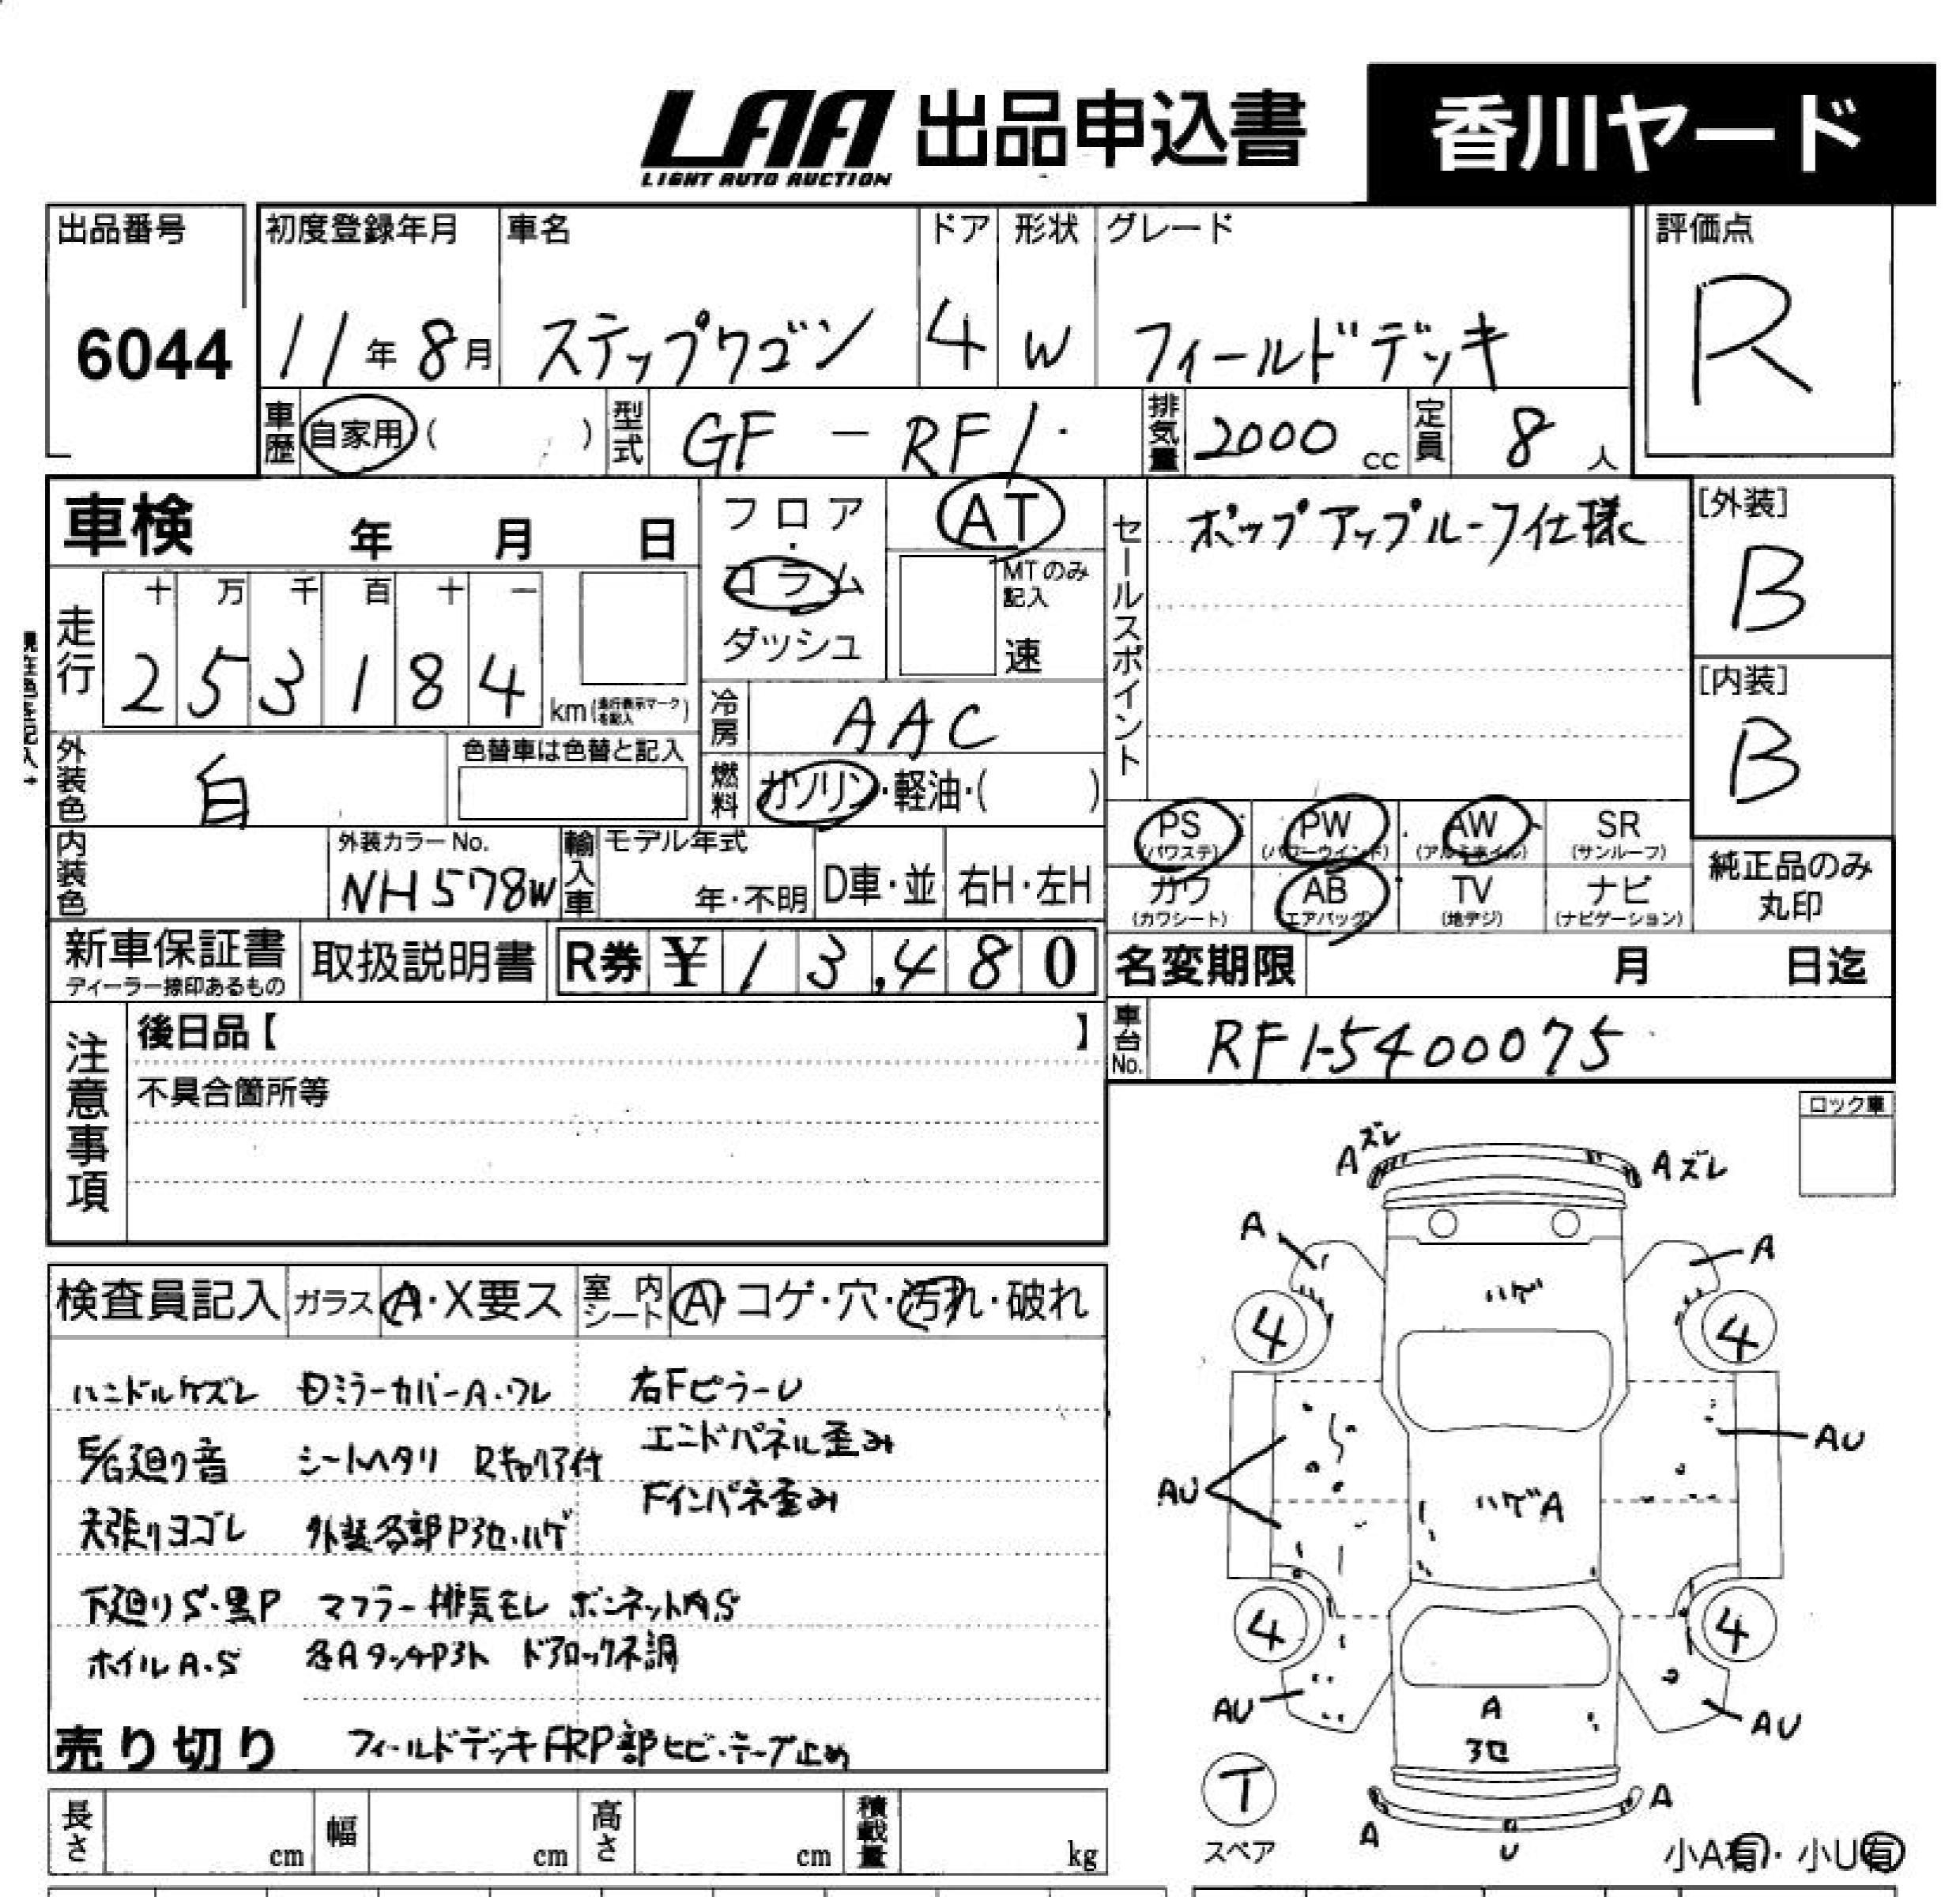 LAA 出品申込書 香川ヤード
LIGHT AUTO AUCTION
出品番号 初度登録年月 車名 ドア 形状 グレード 評価点
6044 11年8月 ステップワゴン 4 W フィールドデッキ R
車歴 自家用 ( ) 型式 GF-RF1 排気量 2000 cc 定員 8 人
車検 年 月 日 フロア・コラム ダッシュ AT セールスポイント ポップアップルーフ仕様 [外装] B
MTのみ記入 速
走行 十 万 千 百 十 一
2 5 3 1 8 4 km(走行表示マークを記入)
[内装] B
冷房 AAC
外装色 白 色替車は色替と記入
燃料 ガソリン・軽油・( )
PS (パワステ) PW (パワーウインド) AW (アルミホイル) SR (サンルーフ)
内装色 外装カラーNo. NH578W 輸入車 モデル年式 年・不明 D車・並 右H・左H
カワ (カワシート) AB (エアバッグ) TV (地デジ) ナビ (ナビゲーション) 純正品のみ丸印
新車保証書 ディーラー捺印あるもの 取扱説明書 R券 ¥ 1 3,4 8 0 名変期限 月 日迄
注意事項 後日品【 】 車台No. RF1-5400075
不具合箇所等
ロック車
検査員記入 ガラス A・X要ス 室内シート A・コゲ・穴・汚れ・破れ
ハンドルケズレ 日ミラーカバーA・ワレ 右FピラーU
エンドパネル歪み
E/G廻り音 シートヘタリ Rキャリア付
Fインパネ歪み
天張リヨゴレ 外装各部Pヨセ・ハゲ
下廻りS・黒P マフラー排気モレ ボンネット内S
ホイルA・S 各AタッチPヨト ドアロック不調
売り切り フィールドデッキFRP部ヒビ・テープ止め
長さ cm 幅 cm 高さ cm 積載量 kg
Aズレ Aズレ
A A
ハゲ
4 4
AU AU
ハゲA
4 4
AU AU
A
ヨセ
T
スペア
A U A
小A有・小U有